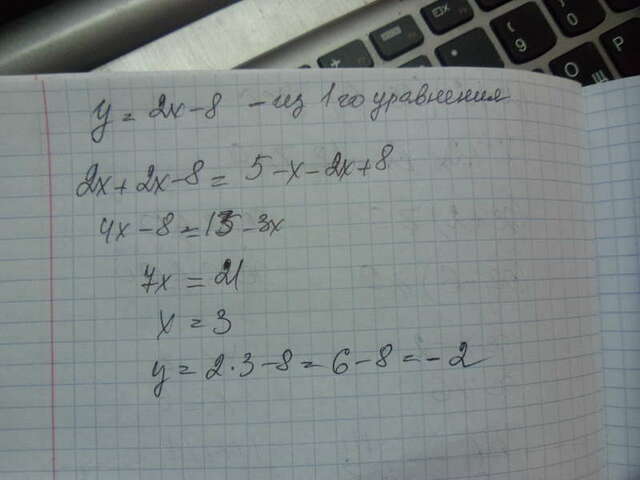 y = 2x - 8 - из 1го уравнения
2x + 2x - 8 = 5 - x - 2x + 8
4x - 8 = 13 - 3x
7x = 21
x = 3
y = 2 · 3 - 8 = 6 - 8 = - 2